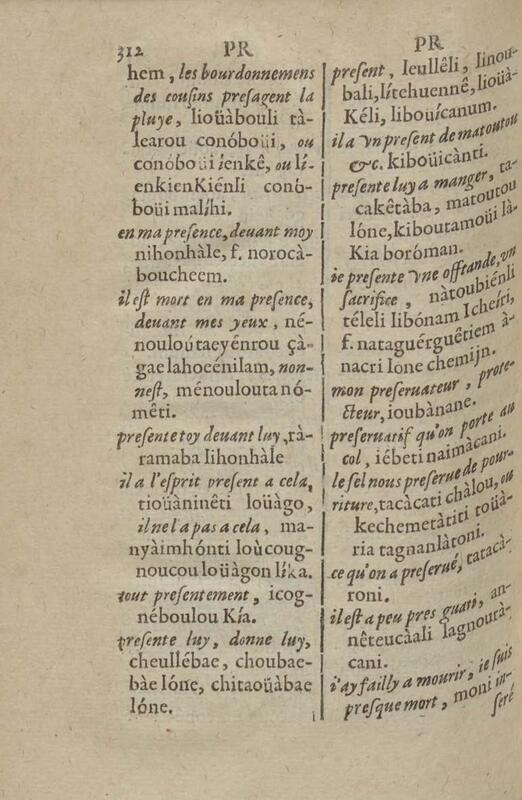 312 PR
hem, les bourdonnemens
des cousins presagent la
pluye, lioüàbouli tà-
learou conóboüi, ou
conóboüi íenkê, ou lí-
enkienKiénli conó-
boüi malíhi.
en ma presence, deuant moy
nihonhàle, f. norocà-
boucheem.
il est mort en ma presence,
deuant mes yeux, né-
nouloútaeyénrou çà-
gaelahoeénilam, non-
nest, ménouloutanó-
mêti.
presente toy deuant luy, rà-
ramaba lihonhàle
il a l'esprit present a cela,
tioüàninêti loüàgo,
il ne l'a pas a cela, ma-
nyàimhónti loùcoug-
noucou loüàgon líka.
tout presentement, icog-
néboulou Kía.
presente luy, donne luy,
cheullébae, choubae-
bàe lóne, chitaoüàbae
lóne.
PR
present, leullêli, linou-
bali, lítehuennê, lioüà-
Kéli, libouícanum.
il a vn present de matoutou
&c. kiboüicànti.
presente luy a manger, ta-
cakêtàba, matoutou
lóne, kiboutamoüi là-
Kia boróman.
ie presente vne offrande, vn
sacrifice, nàtoubiénli
téleli libónam Icheíri,
f. nataguérguêtiem à-
nacri lone chemijn.
mon preseruateur, prote-
cteur, ioubànane.
preseruatif qu'on porte au
col, iébeti naimàcani.
le sel nous preserue de pour-
riture, tacàcati chàlou, ou
kechemetàtiti toüà-
ria tagnanlàtoni.
ce qu'on a preserué, tatacà-
roni.
il est a peu pres guari, an-
nêteucàali lagnourà-
cani.
i'ay failly a mourir, ie suis
presque mort, moni in-
seré